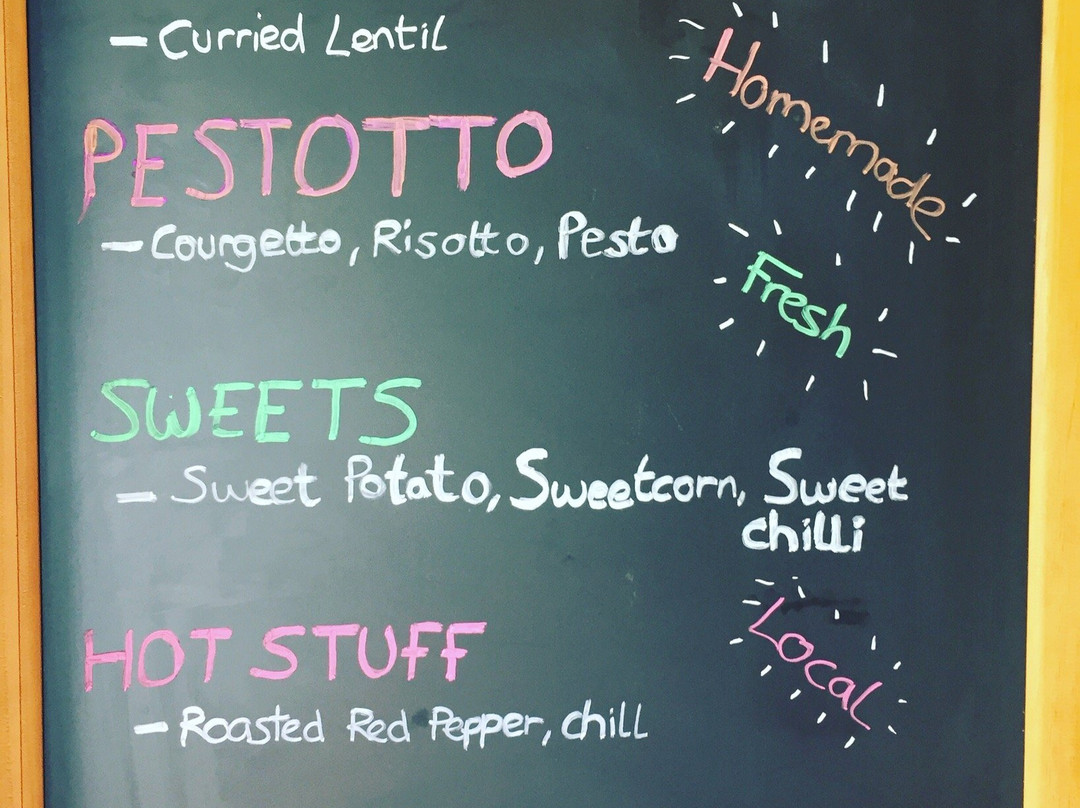 - Curried Lentil
Homemade
PESTOTTO
- Courgetto, Risotto, Pesto
Fresh
SWEETS
- Sweet Potato, Sweetcorn, Sweet
chilli
Local
HOT STUFF
- Roasted Red Pepper, chill